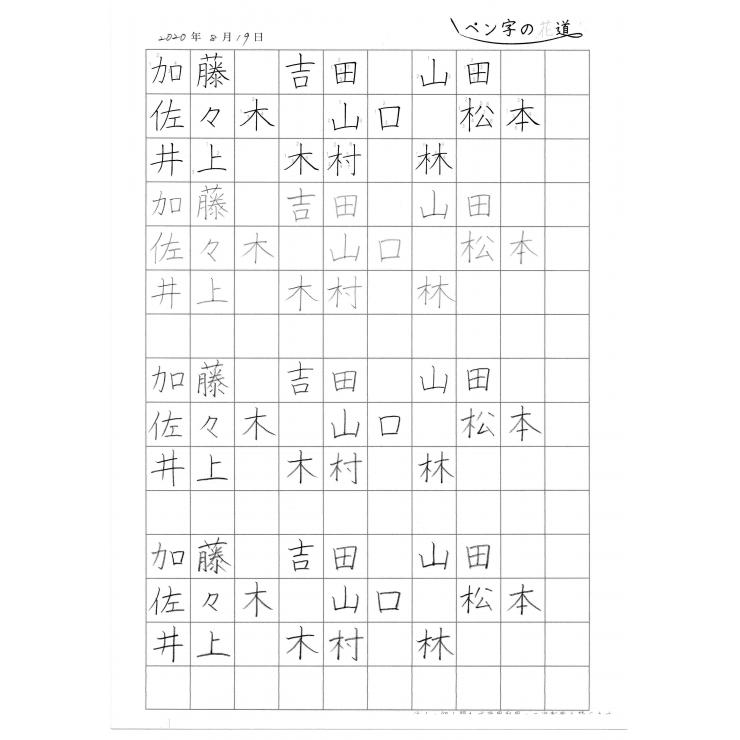 2020年8月19日 ペン字の花道
加藤 吉田 山田
佐々木 山口 松本
井上 木村 林
加藤 吉田 山田
佐々木 山口 松本
井上 木村 林
加藤 吉田 山田
佐々木 山口 松本
井上 木村 林
加藤 吉田 山田
佐々木 山口 松本
井上 木村 林